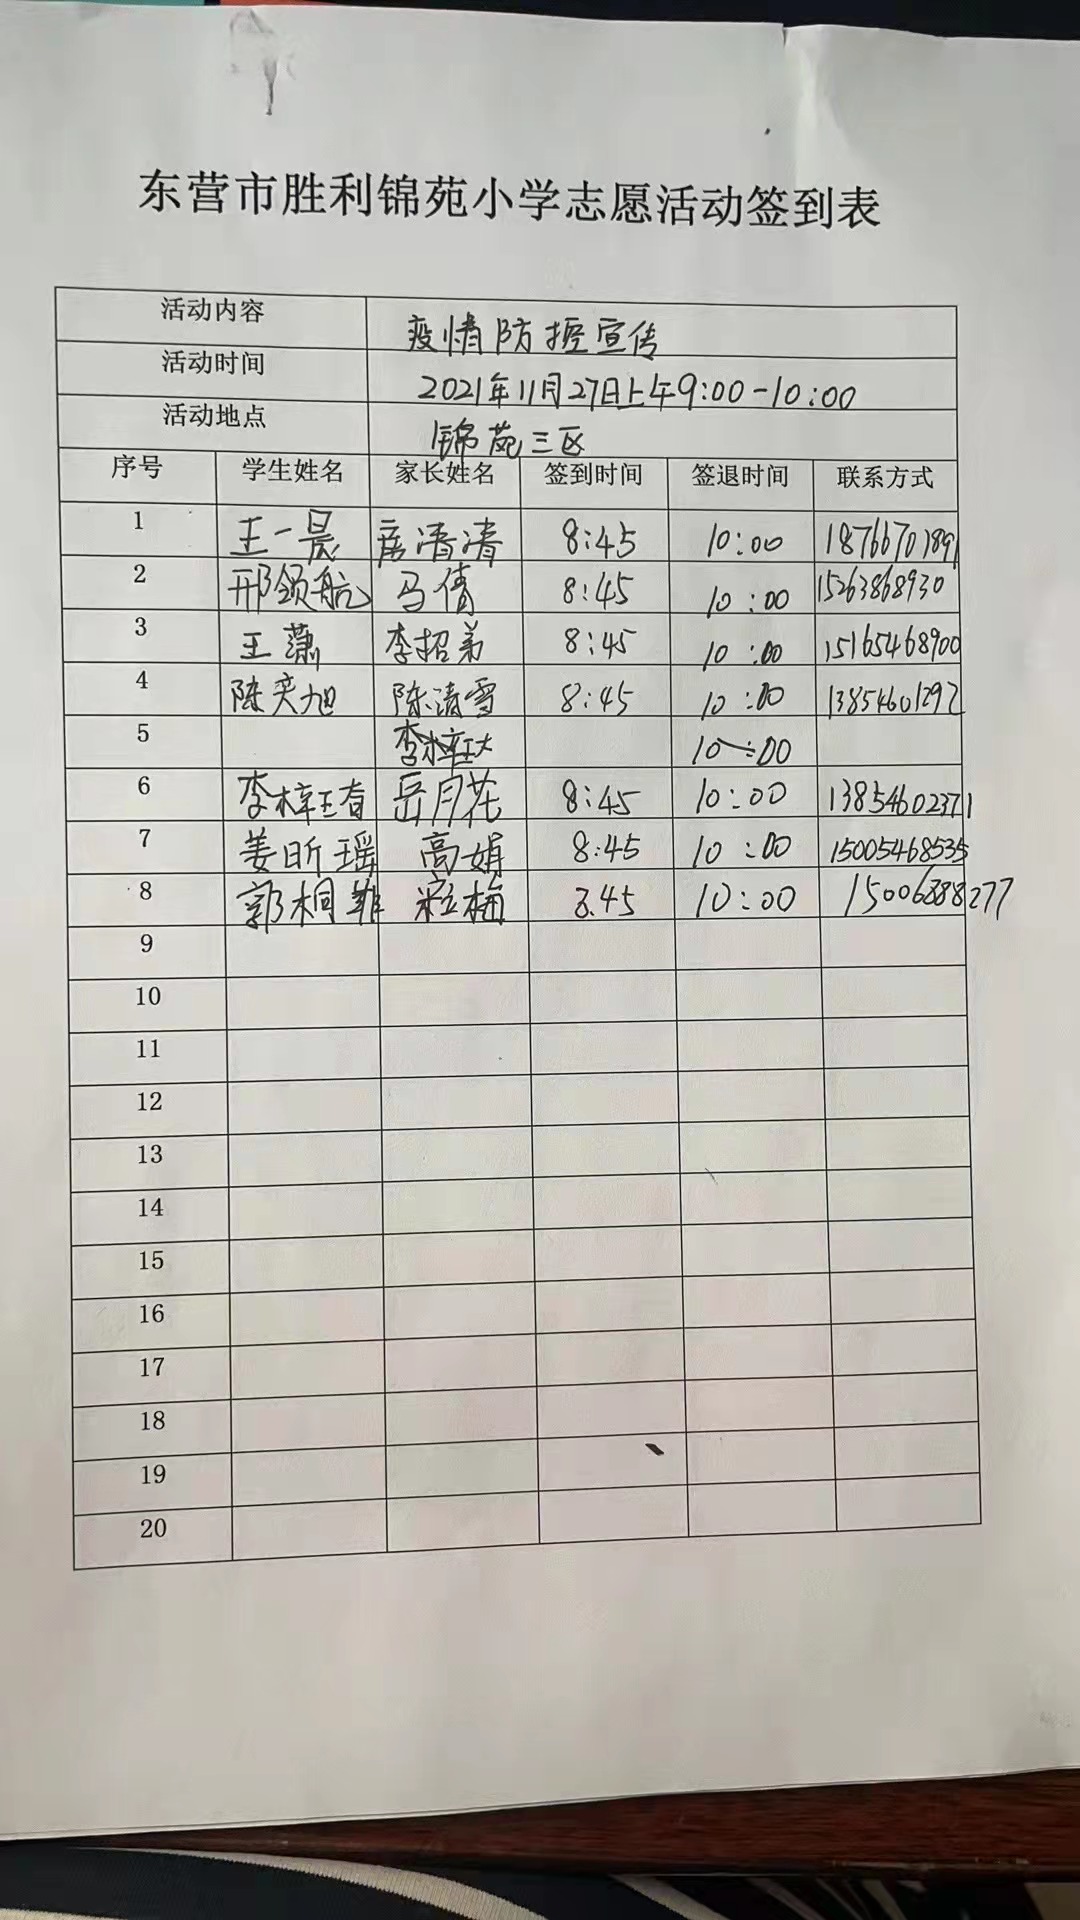 东营市胜利锦苑小学志愿活动签到表
活动内容 疫情防控宣传
活动时间 2021年11月27日上午9:00-10:00
活动地点 锦苑三区
序号 学生姓名 家长姓名 签到时间 签退时间 联系方式
1 王一晨 席清清 8:45 10:00 18766701891
2 邢领航 马倩 8:45 10:00 15263868930
3 王潇 李招弟 8:45 10:00 15165468900
4 陈奕旭 陈清雪 8:45 10:00 13854601292
5 10:00
6 岳月花 8:45 10:00 13854602371
7 姜昕瑶 高娟 8:45 10:00 15005468535
8 郭桐菲 8.45 10:00 15006388277
9
10
11
12
13
14
15
16
17
18
19
20